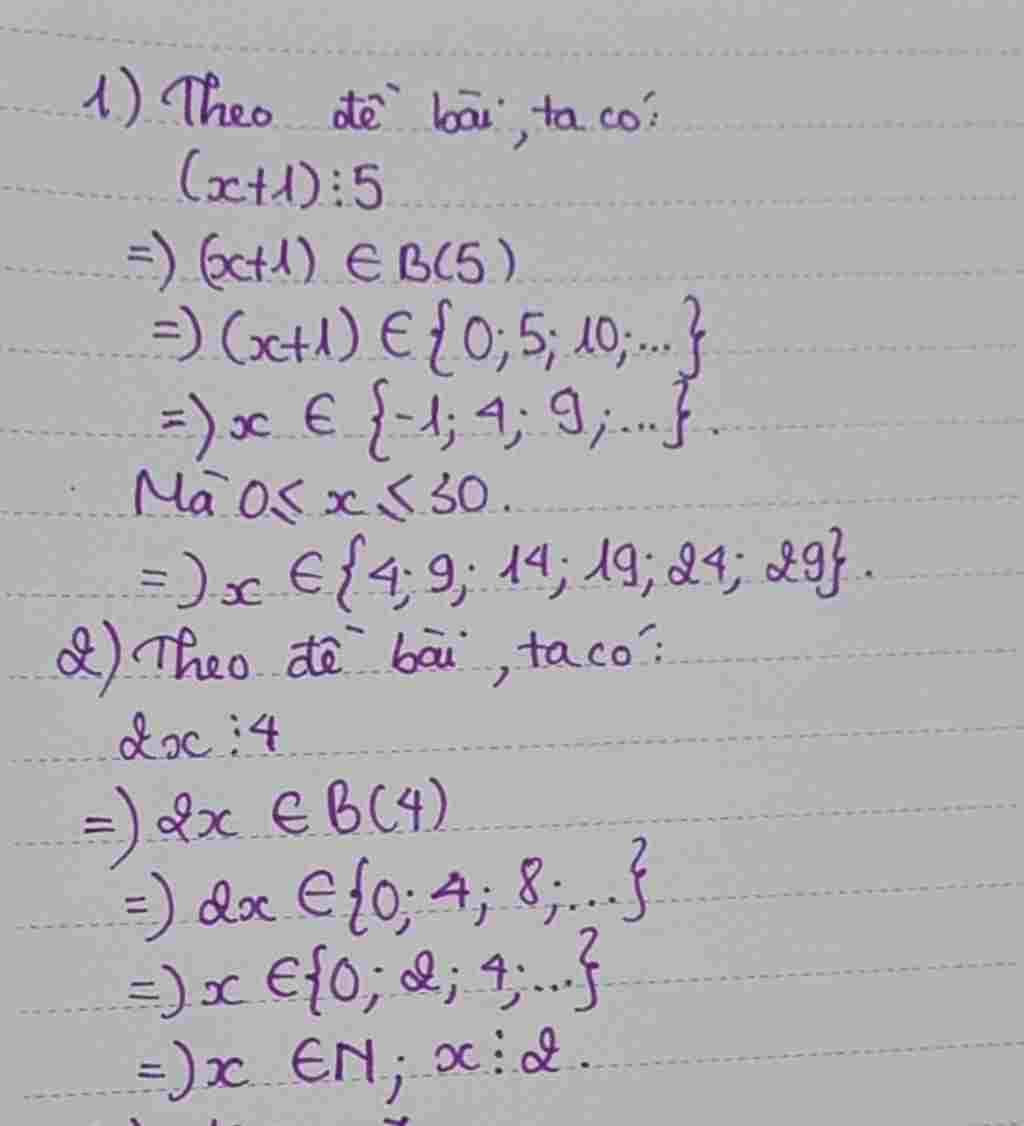 1) Theo đề bài, ta có:
(x+1)⋮5
=) (x+1) ∈ B(5)
=) (x+1) ∈ {0; 5; 10; ...}
=) x ∈ {-1; 4; 9; ...}.
Mà 0 ≤ x ≤ 30.
=) x ∈ {4; 9; 14; 19; 24; 29}.
2) Theo đề bài, ta có:
2x ⋮ 4
=) 2x ∈ B(4)
=) 2x ∈ {0; 4; 8; ...}
=) x ∈ {0; 2; 4; ...}
=) x ∈ N; x ⋮ 2.